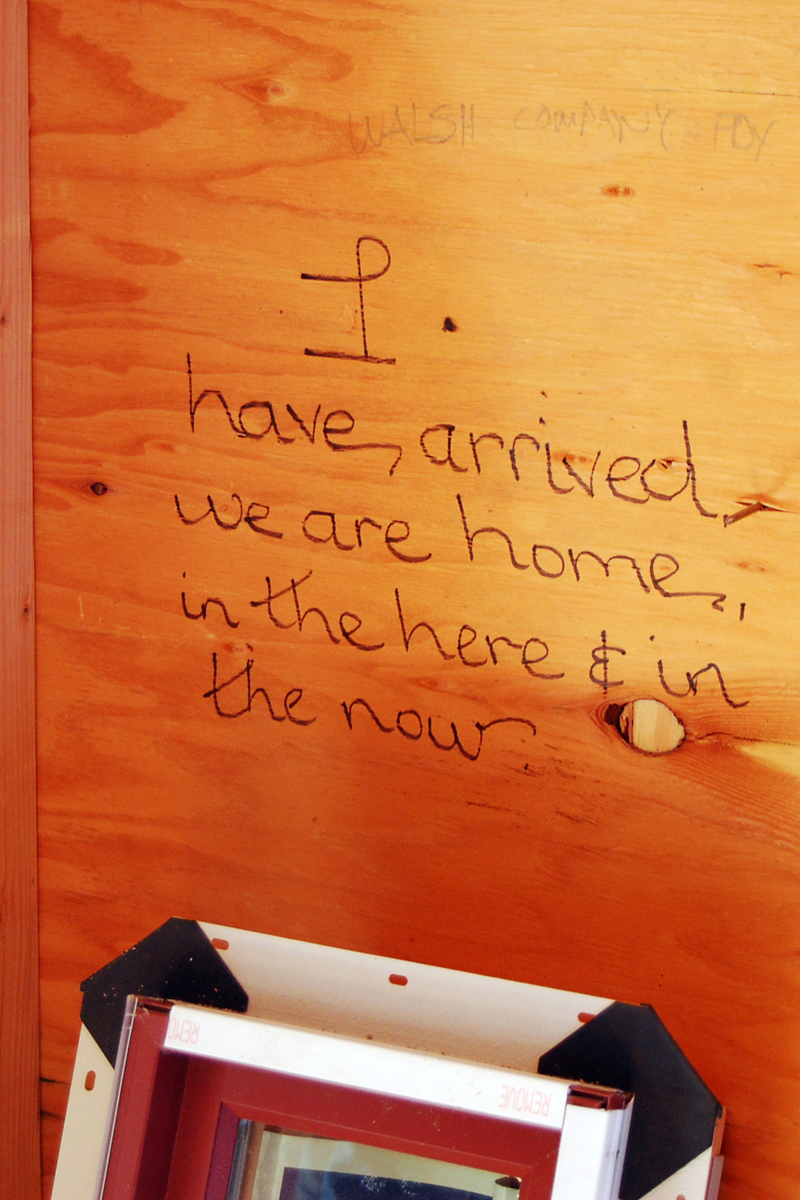 WALSH COMPANY
I
have arrived,
we are home,
in the here & in
the now
REMOVE
REMOVE